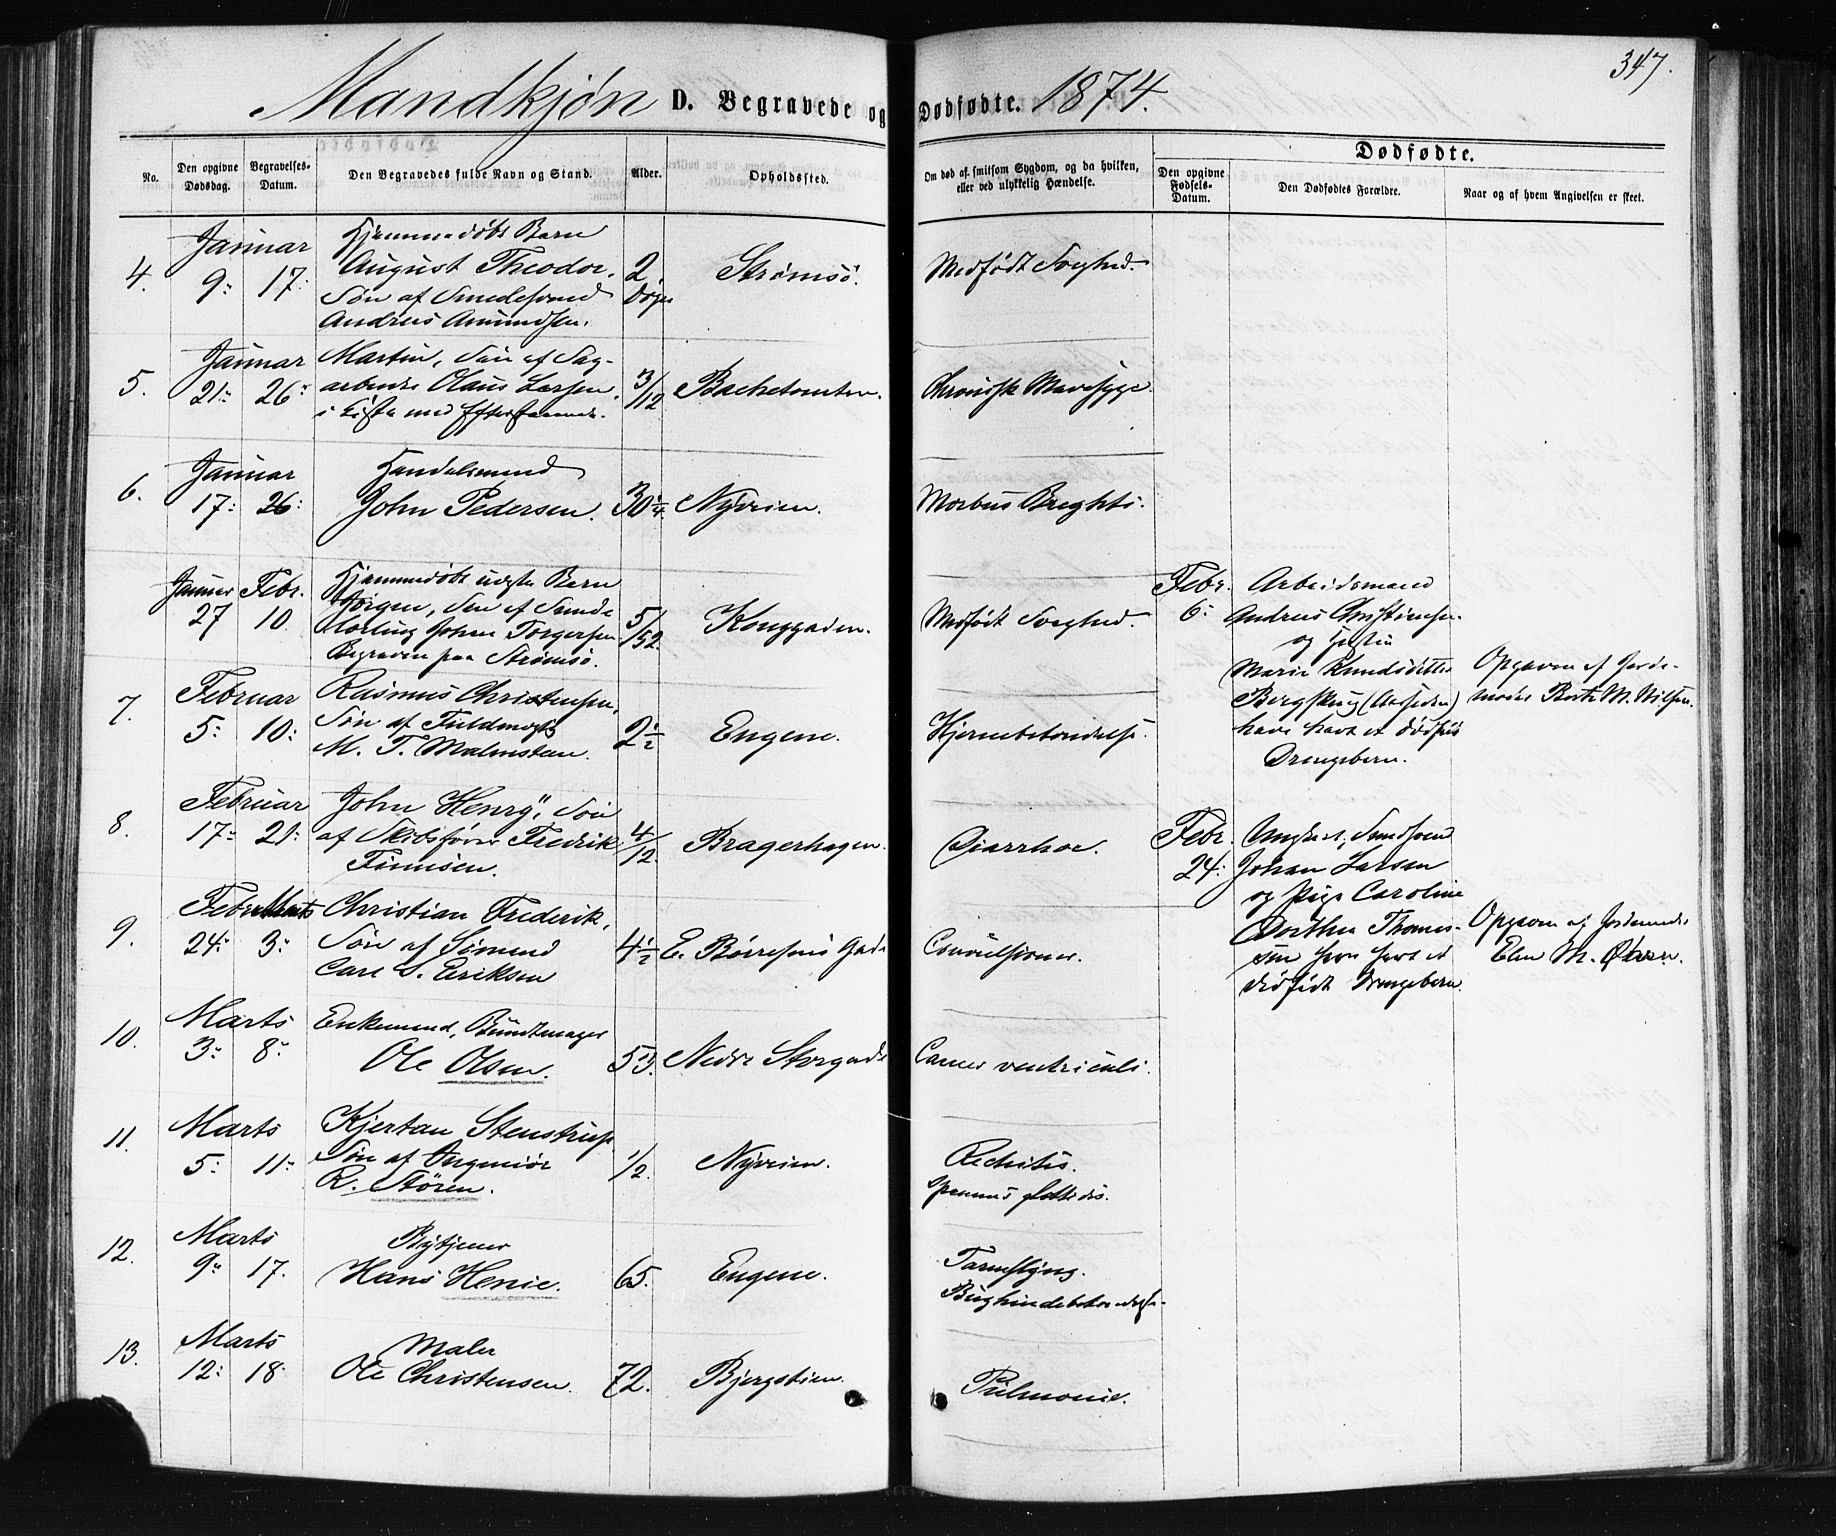 347.
Mandkjøn D. Begravede og Dødfødte. 1874.
No.
Den opgivne Dødsdag.
Begravelses-Datum.
Den Begravedes fulde Navn og Stand.
Alder.
Opholdssted.
Om død af smitsom Sygdom, og da hvilken, eller ved ulykkelig Hændelse.
Dødfødte.
Den opgivne Fødsels-Datum.
Den Dødfødtes Forældre.
Naar og af hvem Angivelsen er skeet.
4. Januar 9. 17. Hjemmedøbt Barn
August Theodor,
Søn af Smedesvend
Andreas Amundsen.
2 Døgn
Strømsö.
Medfødt Svaghed.
5. Januar 21. 26. Martin, Søn af Sag-
arbeider Olaus Larsen,
i Kiste med Efterfølgende.
3/12
Bachetomten.
Chronisk Mavesyge.
6. Januar 17. 26. Handelsmand
John Pedersen.
30 1/4
Nyveien.
Morbus Breghti.
Januar 27 Febr. 10 Hjemmedøbt Barn
Jörgen, Søn af Smede
Johan Torgersen
Begraven paa Strømsö.
5/52
Konggaden.
Medfødt Svaghed.
Febr. 6. Arbeidsmand
Andreas Christensen
og Hustru
Marie Knudsdatter
Bergskaug
have havt et dødfødt
Drengebarn.
Opgaven af Jorde-
moder M. Nilsen.
7. Februar 5. 10. Rasmus Christensen,
Søn af Fuldmægtig
M. T. Malmsteen.
2 1/2
Engene.
Hjernebetendelse.
8. Februar 17. 21. John Henry, Søn
af Skibsfører Fredrik
Finnsøen.
4/12
Bragerhagen.
Diarrhoe.
Febr. 24. Ungkarl, Smedsvend
Johan Larsen
og Pige Caroline
Dorthea Thomes-
sen have havt et
dødfødt Drengebarn.
Opgaven af Jordemoder
Elen M.
9. Febr. 24. Marts 3. Christian Frederik,
Søn af Sømand
Carl S. Eriksen
4 1/2
E. Børresens Gade
Convulsioner.
10. Marts 3. 8. Enkemand, Buntmager
Ole Olsen.
53.
Nedre Storgade
Cancer ventriculi.
11. Marts 5. 11. Kjertan Stenstrup
Søn af Ingeniör
R. Stören.
1/2.
Nyveien.
Rechitis.
Spasmus glottidis.
12. Marts 9. 17. Bytjener
Hans Henie.
65.
Engene.
Tarmslyng.
Bughindebetændelse.
13. Marts 12. 18. Maler
Ole Christensen.
72.
Bjergstien.
Pulmonie.